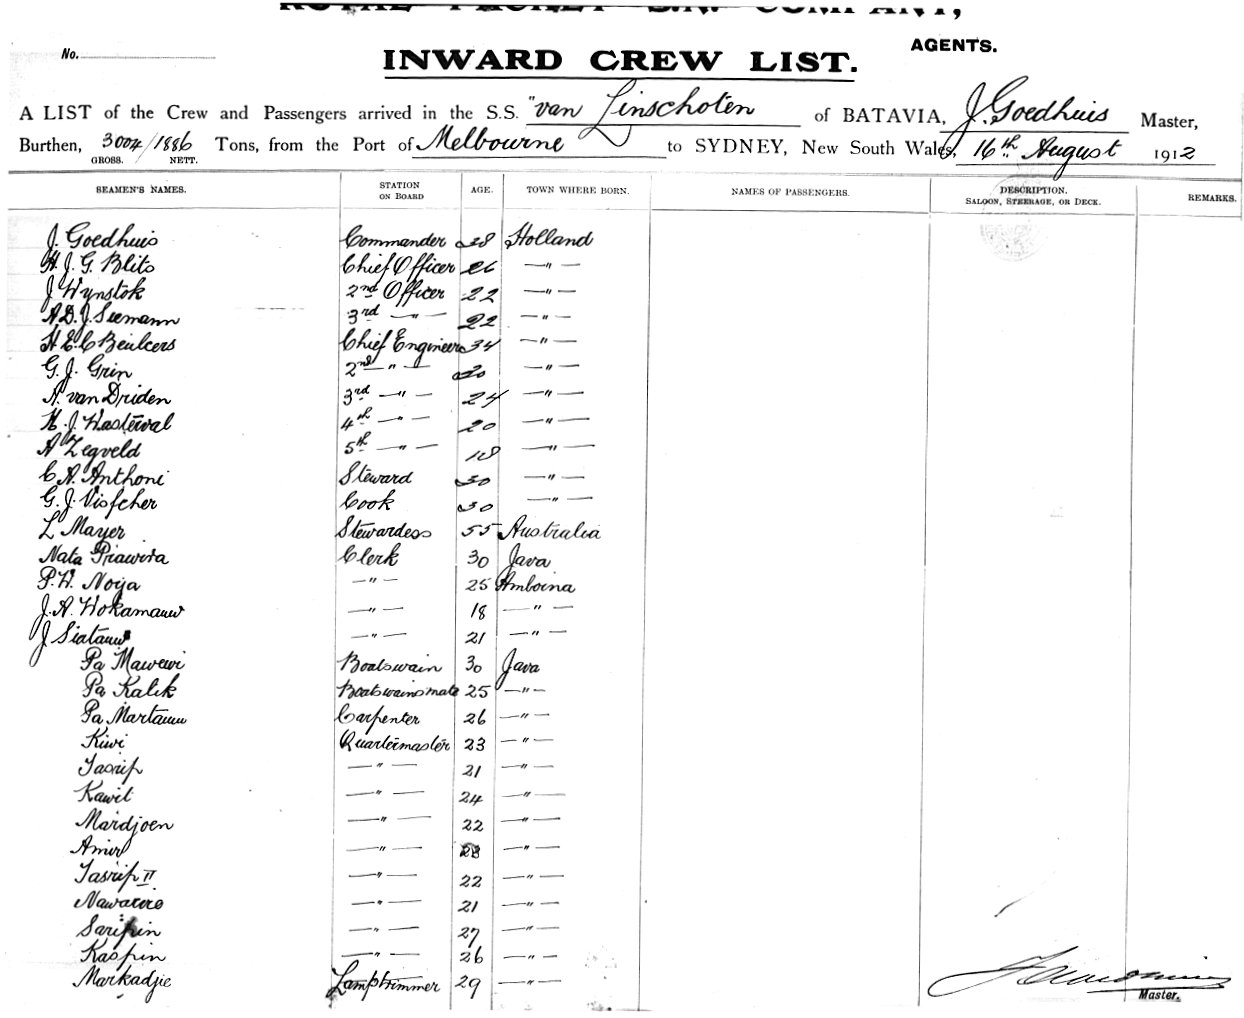 ROYAL PACKET S.N. COMPANY,
AGENTS.
No.
INWARD CREW LIST.
A LIST of the Crew and Passengers arrived in the S.S. "van Linschoten of BATAVIA, J. Goedhuis Master,
Burthen, 3004/1886 Tons, from the Port of Melbourne to SYDNEY, New South Wales, 16th August 1912
GROSS. NETT.
SEAMEN'S NAMES. STATION ON BOARD AGE. TOWN WHERE BORN. NAMES OF PASSENGERS. DESCRIPTION. SALOON, STEERAGE, OR DECK. REMARKS.
J. Goedhuis Commander 38 Holland
H. J. G. Blits Chief Officer 26 — " —
J Wynstok 2nd Officer 22 — " —
A. D. J. Seemann 3rd — " — 22 — " —
H. E. C Beulcers Chief Engineer 34 — " —
G. J. Grin 2nd — " — 30 — " —
A. van Driden 3rd — " — 24 — " —
H. J. Wasterval 4th — " — 20 — " —
A Zegveld 5th — " — 18 — " —
C. A. Anthoni Steward 30 — " —
G. J. Visfcher Cook 30 — " —
L Mayer Stewardess 55 Australia
Nata Prawira Clerk 30 Java
P. W. Noija — " — 25 Amboina
J. A. Wokamauw — " — 18 — " —
J Siatauw — " — 21 — " —
Pa Mawewi Boatswain 30 Java
Pa Kalik Boatswainsmate 25 — " —
Pa Martamu Carpenter 26 — " —
Kiwi Quartermaster 23 — " —
Tasrip — " — 21 — " —
Kawit — " — 24 — " —
Mardjoen — " — 22 — " —
Amir — " — 28 — " —
Tasrip II — " — 22 — " —
Nawawie — " — 21 — " —
Saripin — " — 27 — " —
Kaspin — " — 26 — " —
Markadjie Lamptrimmer 29 — " —
Master.